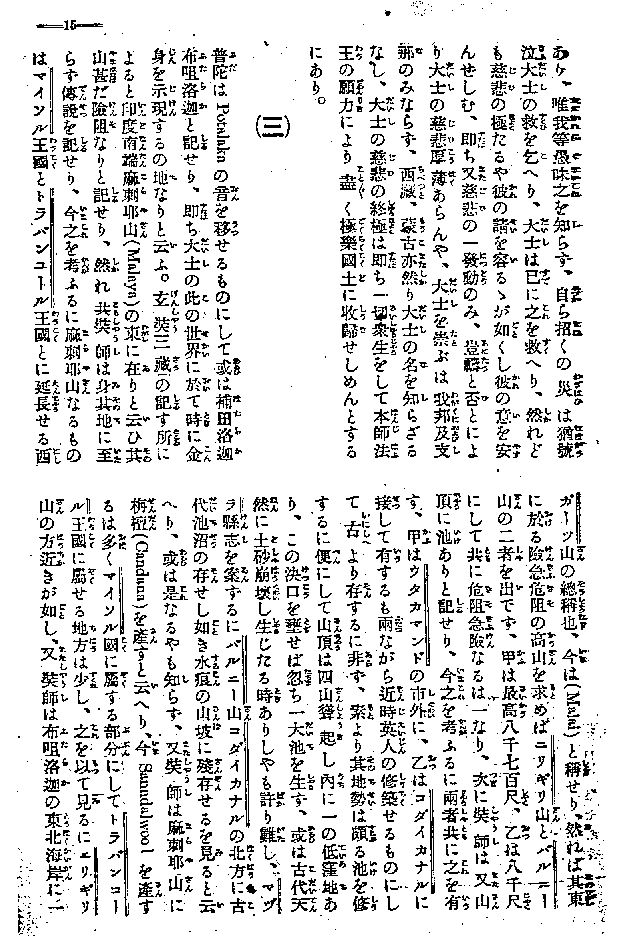 —15—
あり、唯我等愚昧之を知らず、自ら招くの災は猶號
泣大士の救を乞へり、大士は已に之を救へり、然れど
も慈悲の極たるや彼の請を容るゝが如くし彼の意を安
んせしむ、即ち又慈悲の一發動のみ、豈麟と否とによ
り大士の慈悲厚薄あらんや、大士を崇ぶは我邦及支
那のみならず、西藏、蒙古亦然り大士の名を知らざる
なし、大士の慈悲の終極は即ち一切衆生をして本師法
王の願力により盡く極樂國土に收歸せしめんとする
にあり。
(三)
普陀は Potalaka の音を移せるものにして或は補田洛迦
布呾洛迦と記せり、即ち大士の此の世界に於て時に金
身を示現するの地なりと云ふ。玄奘三藏の記す所に
よると印度南端麻剌耶山(Malaya)の東に在りと云ひ其
山甚だ險阻なりと記せり、然れ共奘師は身其地に至
らず傳説を記せり、今之を考ふるに麻剌耶山なるもの
はマイソル王國とトラバンコール王國とに延長せる西
ガーツ山の總稱也、今は(Malaia)と稱せり、然れば其東
に於る險急危阻の高山を求めばニリギリ山とバルニー
山の二者を出でず、甲は最高八千七百尺、乙は八千尺
にして共に危阻急險なるは一なり、次に奘師は又山
頂に池ありと記せり、今之を考ふるに兩者共に之を有
す、甲はウタカマンドの市外に、乙はコダイカナルに
接して有するも兩ながら近時英人の修築せるものにし
て、古より存するに非ず、素より其地勢は頗る池を修
するに便にして山頂は四山聳起し內に一の低窪地あ
り、この決口を壅せば忽ち一大池を生ず、或は古代天
然に土砂崩壞し生じたる時ありしやも許り難し、マヅ
ラ縣志を案するにバルニー山コダイカナルの北方に古
代池沼の存せし如き水痕の山坡に殘存せるを見ると云
へり、或は是なるやも知らず、又奘師は麻剌耶山に
栴檀(Candana)を產すと云へり、今 Sandalwood を產す
るは多くマイソル國に屬する部分にしてトラバンコー
ル王國に屬せる地方は少し、之を以て見るにニリギリ
山の方近きが如し、又奘師は布呾洛迦の東北海岸に一